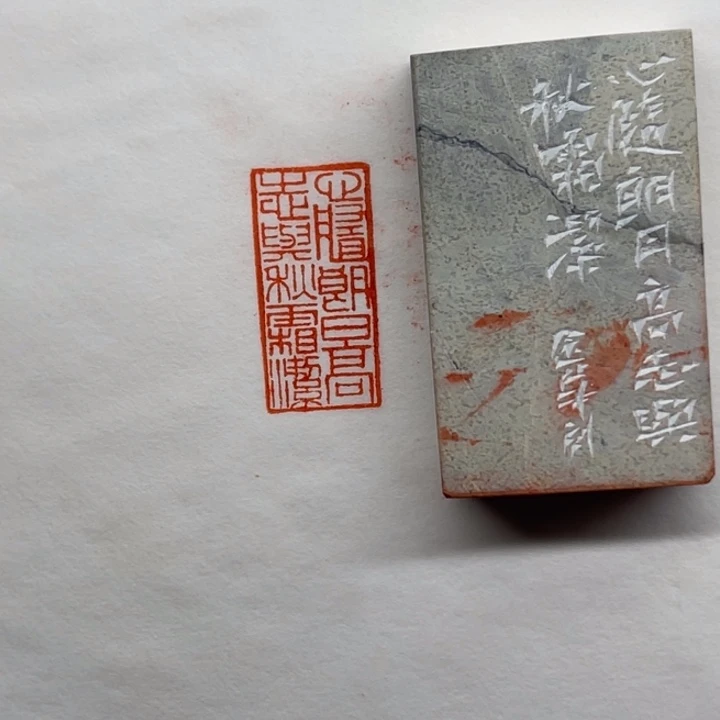 心隨朗日高
志與秋霜潔
心隨朗日高志與
秋霜潔